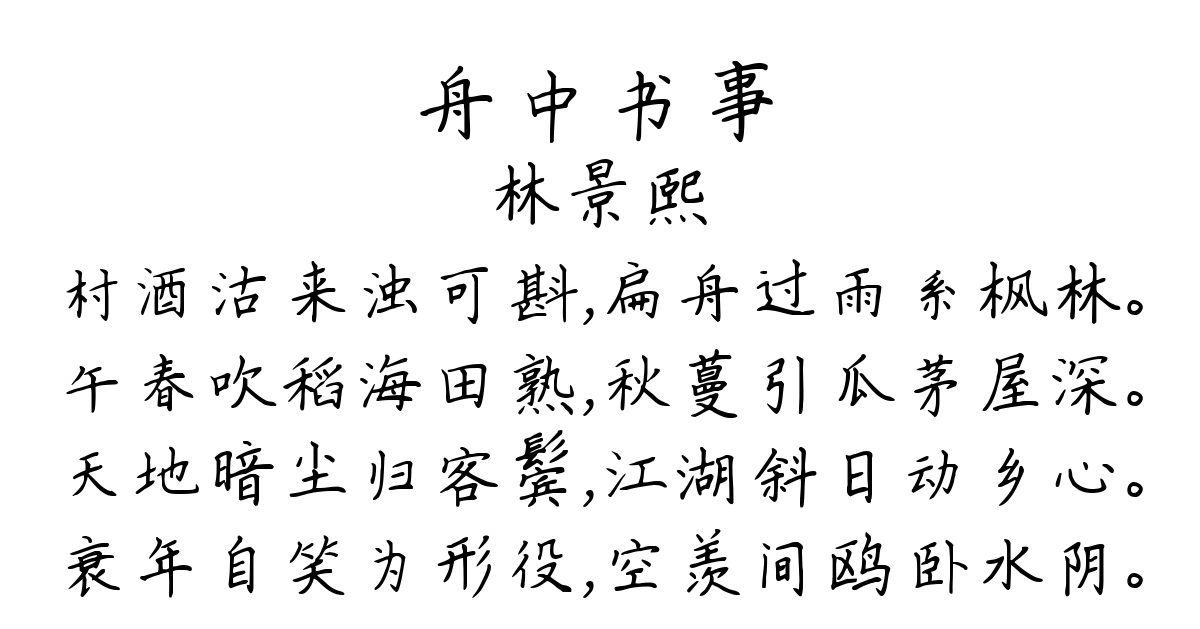 舟中书事
林景熙
村酒沽来浊可斟,扁舟过雨系枫林。
午春吹稻海田熟,秋蔓引瓜茅屋深。
天地暗尘归客鬓,江湖斜日动乡心。
衰年自笑为形役,空羡间鸥卧水阴。